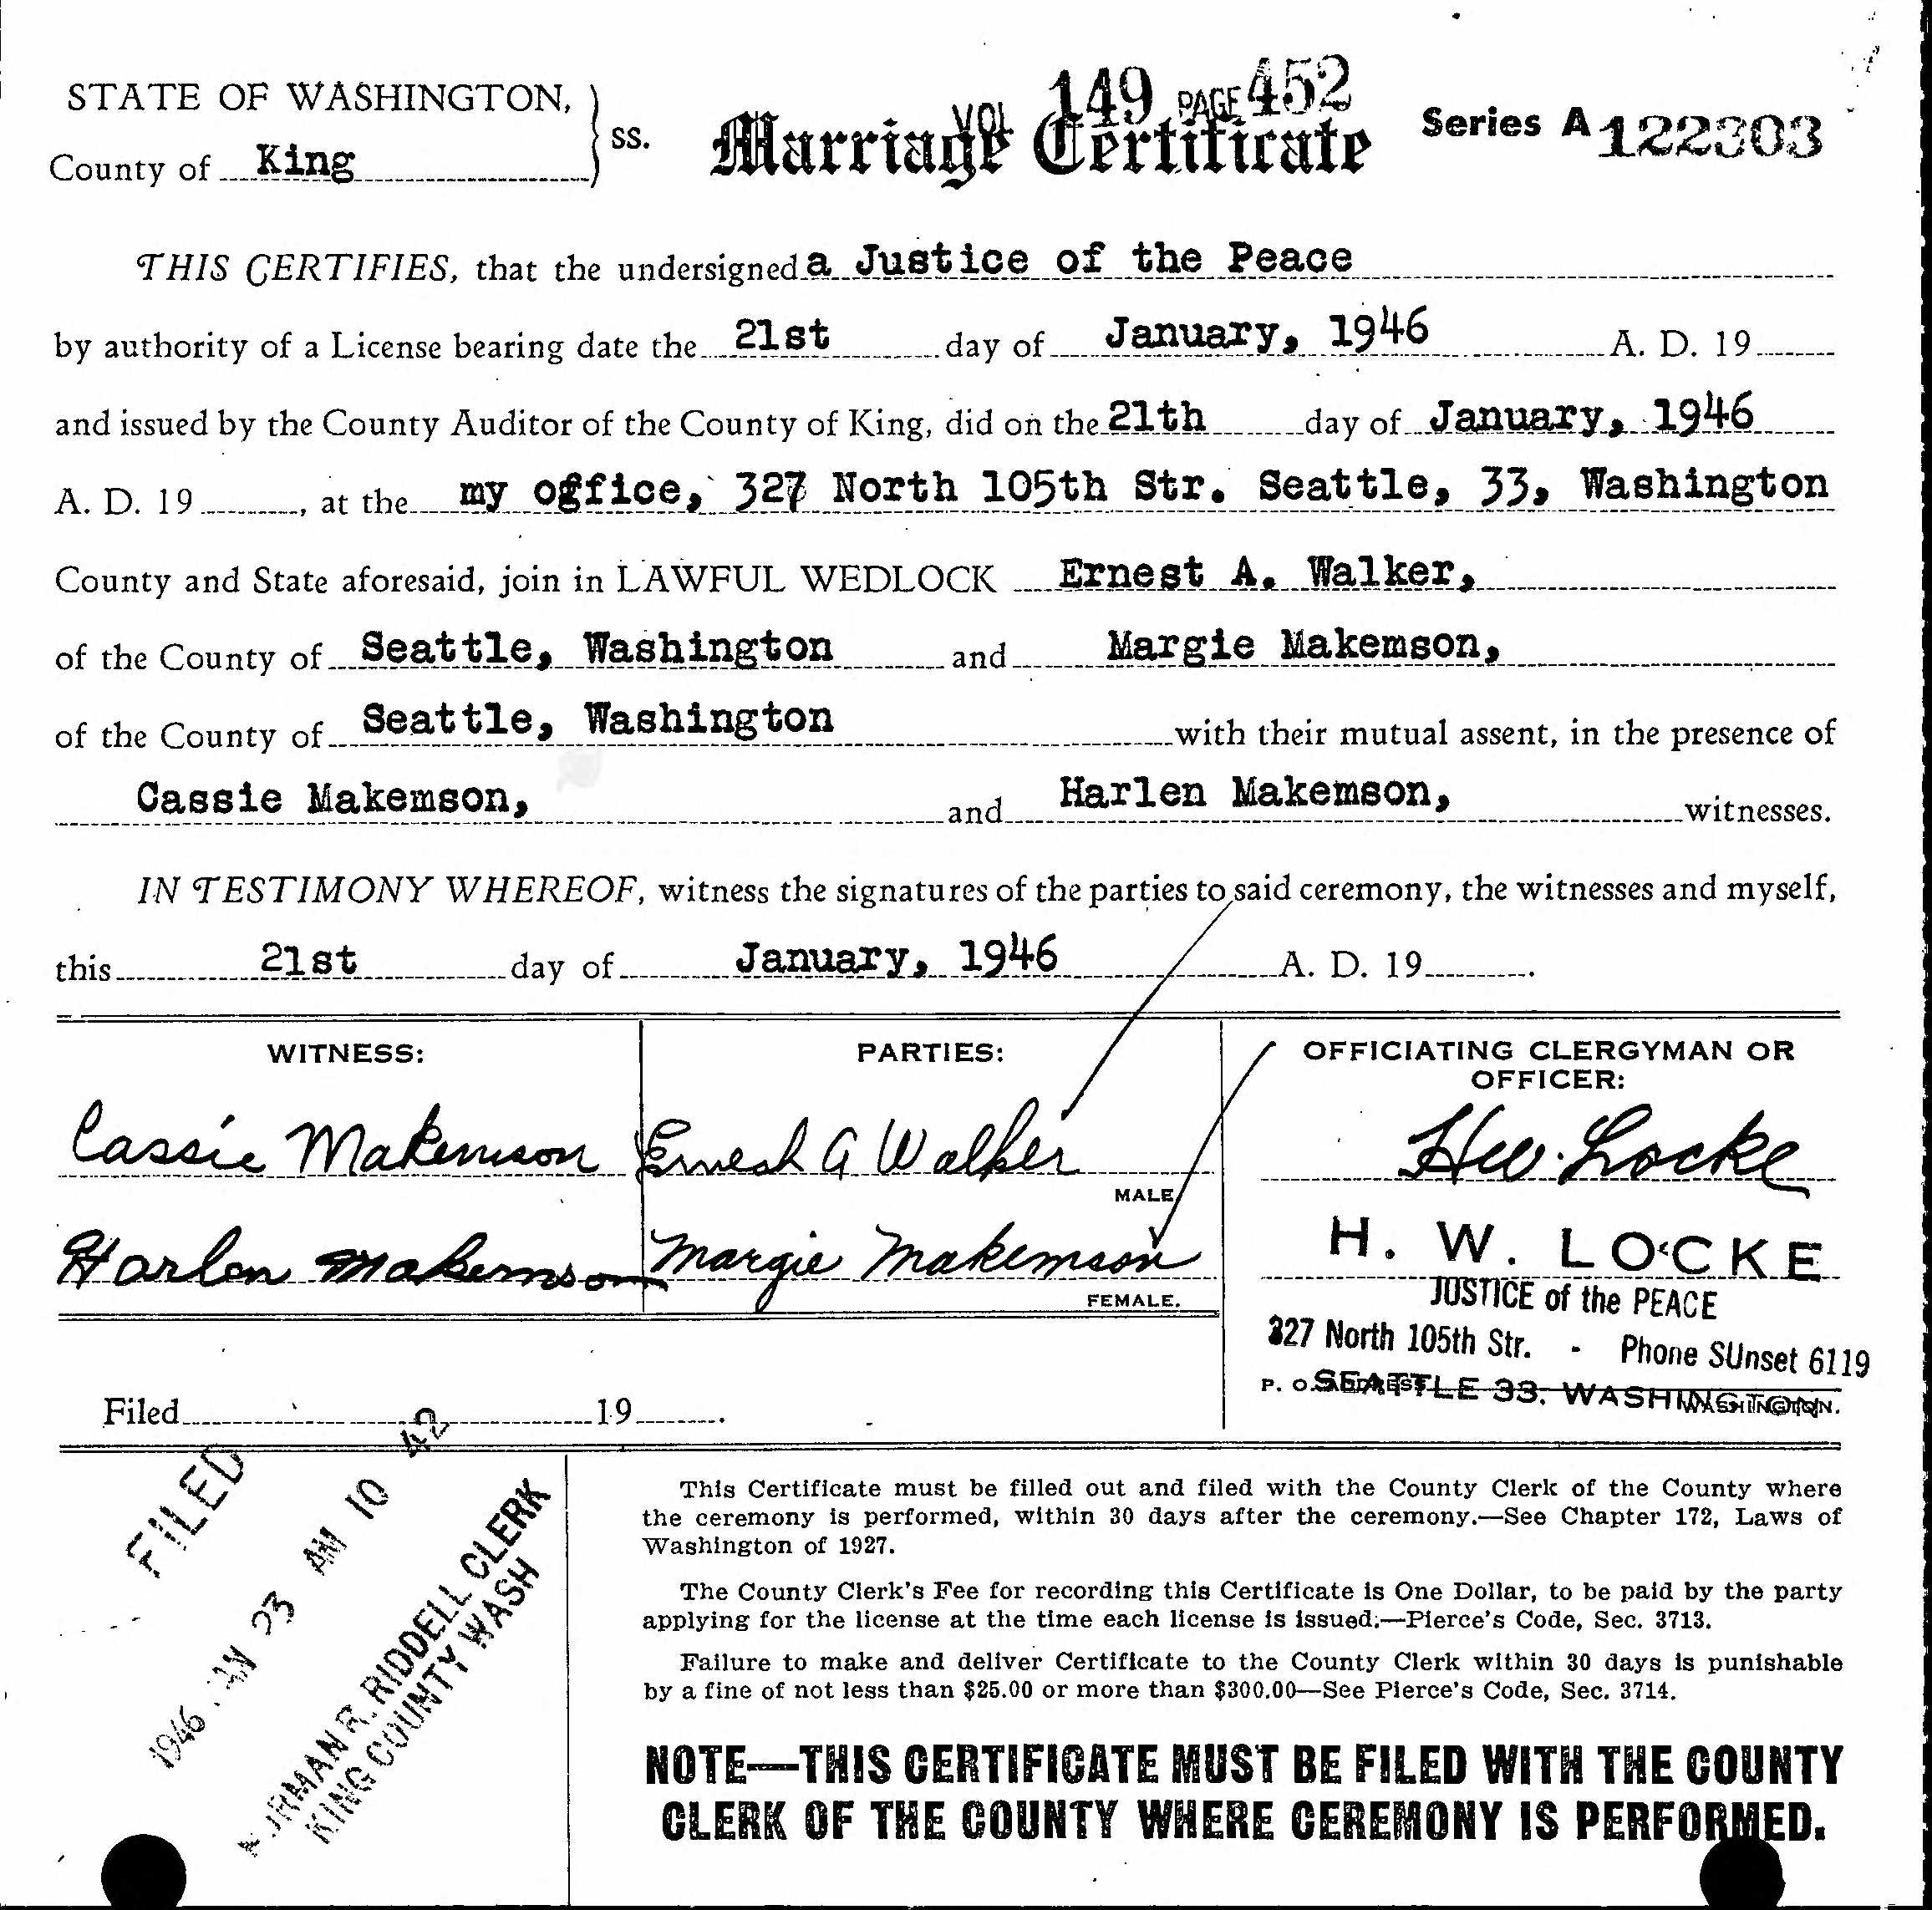 VOL 149 PAGE 452
STATE OF WASHINGTON,
County of King
ss.
Marriage Certificate
Series A 122303
THIS CERTIFIES, that the undersigned a Justice of the Peace
by authority of a License bearing date the 21st day of January, 1946 A. D. 19
and issued by the County Auditor of the County of King, did on the 21th day of January, 1946
A. D. 19, at the my office, 327 North 105th Str. Seattle, 33, Washington
County and State aforesaid, join in LAWFUL WEDLOCK Ernest A. Walker,
of the County of Seattle, Washington and Margie Makemson,
of the County of Seattle, Washington with their mutual assent, in the presence of
Cassie Makemson, and Harlen Makemson, witnesses.
IN TESTIMONY WHEREOF, witness the signatures of the parties to said ceremony, the witnesses and myself,
this 21st day of January, 1946 A. D. 19.
WITNESS:
Cassie Makemson
Harlen Makemson
PARTIES:
Ernest A Walker
MALE
Margie Makemson
FEMALE.
OFFICIATING CLERGYMAN OR
OFFICER:
H.W. Locke
H. W. LOCKE
JUSTICE of the PEACE
327 North 105th Str. - Phone SUnset 6119
P. O. ADDRESS WASHINGTON.
SEATTLE 33, WASHINGTON
Filed 19.
FILED
1946 JAN 23 AM 10 42
NORMAN R. RIDDELL CLERK
KING COUNTY WASH
This Certificate must be filled out and filed with the County Clerk of the County where
the ceremony is performed, within 30 days after the ceremony.—See Chapter 172, Laws of
Washington of 1927.
The County Clerk's Fee for recording this Certificate is One Dollar, to be paid by the party
applying for the license at the time each license is issued.—Pierce's Code, Sec. 3713.
Failure to make and deliver Certificate to the County Clerk within 30 days is punishable
by a fine of not less than $25.00 or more than $300.00—See Pierce's Code, Sec. 3714.
NOTE—THIS CERTIFICATE MUST BE FILED WITH THE COUNTY
CLERK OF THE COUNTY WHERE CEREMONY IS PERFORMED.